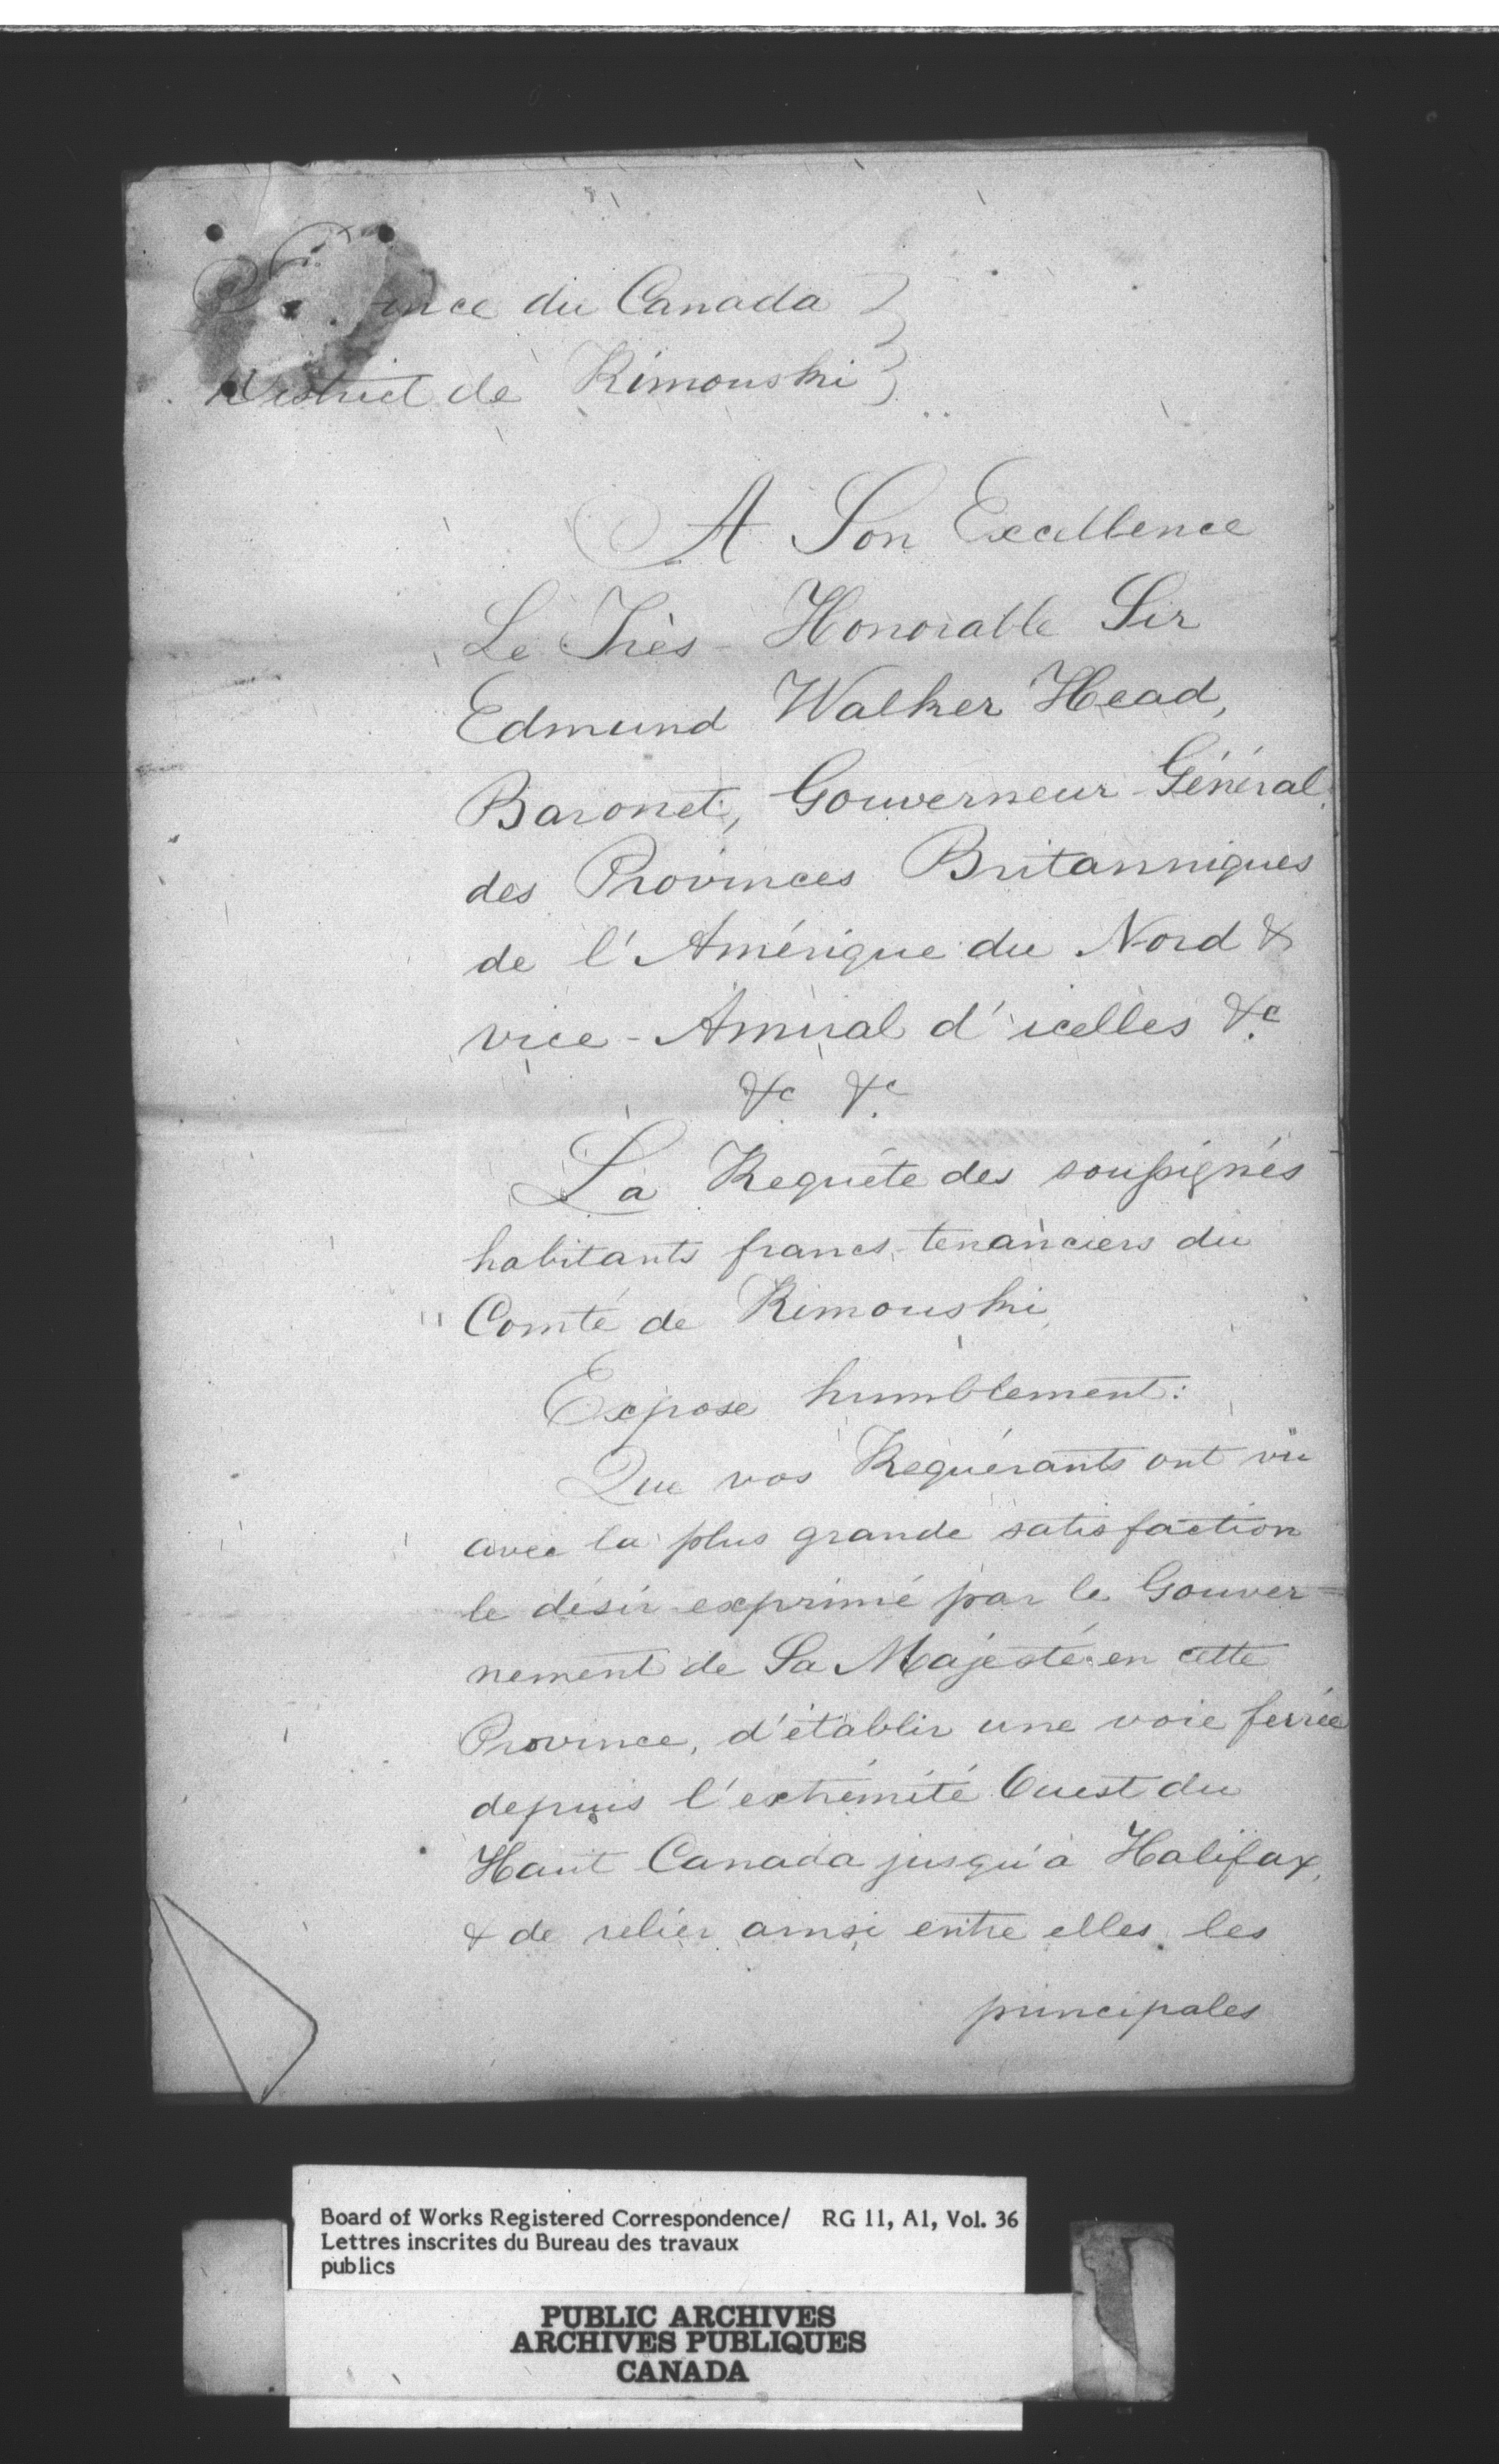 ince du Canada
District de Rimouski
A Son Excellence
Le Très-Honorable Sir
Edmund Walker Head,
Baronet, Gouverneur-Général
des Provinces Britanniques
de l'Amérique du Nord &
vice-Amiral d'icelles &c
&c &c
La Requête des soussignés
habitants francs-tenanciers du
Comté de Rimouski,
Expose humblement:
Que vos Requérants ont vu
avec la plus grande satisfaction
le désir exprimé par le Gouver-
nement de Sa Majesté en cette
Province, d'établir une voie ferrée
depuis l'extrémité Ouest du
Haut Canada jusqu'à Halifax,
& de relier ainsi entre elles les
principales
Board of Works Registered Correspondence/ RG 11, A1, Vol. 36
Lettres inscrites du Bureau des travaux
publics
PUBLIC ARCHIVES
ARCHIVES PUBLIQUES
CANADA